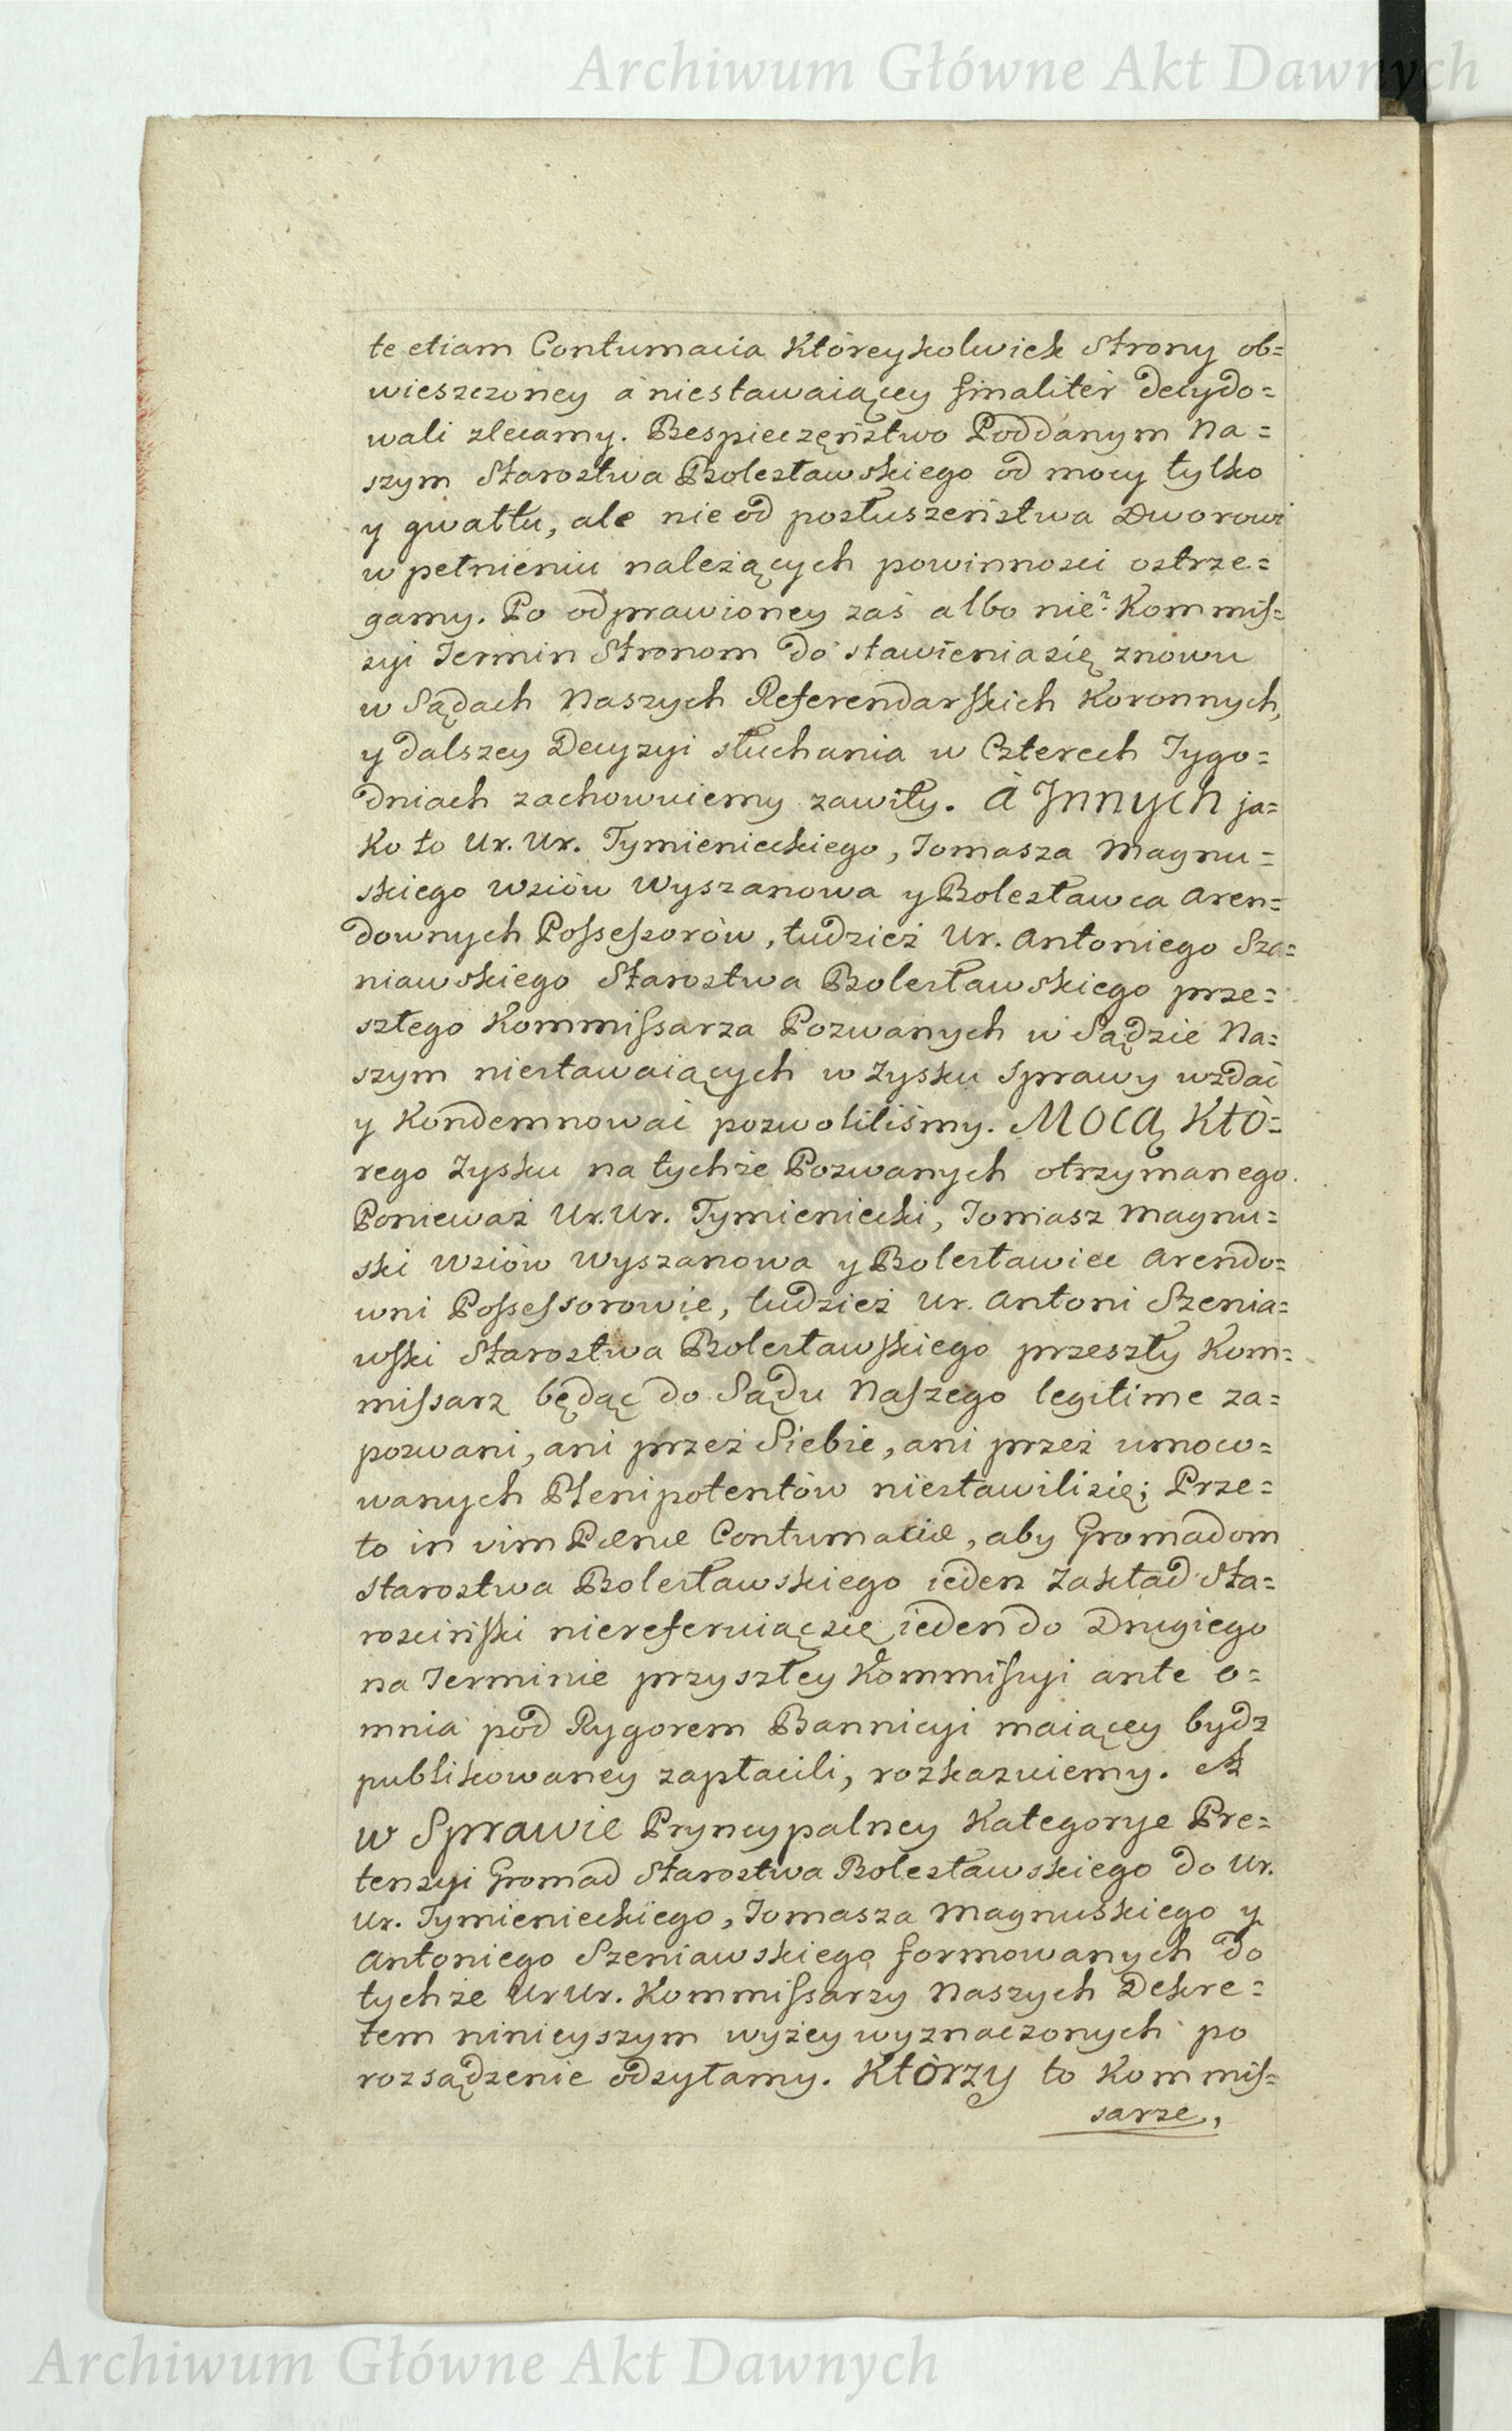 Archiwum Główne Akt Dawnych
te etiam Contumacia Któreykolwiek Strony ob=
wieszczoney a niestawaiącey finaliter decydo=
wali zlecamy. Bespieczęństwo Poddanym Na=
szym Starostwa Bolesławskiego od mocy tylko
y gwałtu, ale nie od posłuszeństwa Dworowi
w pełnieniu należących powinnosci ostrze=
gamy. Po odprawioney zaś albo nie: Kommis=
syi Termin Stronom do stawieniasię znowu
w Sądach Naszych Referendarskich Koronnych,
y dalszey Decyzyi słuchania w Czterech Tygo=
dniach zachowuiemy zawiły. A Innych ja=
ko to Ur. Ur. Tymienieckiego, Tomasza Magnu=
skiego Wsiów Wyszanowa y Bolesławca Aren=
downych Possessorów, tudzież Ur. Antoniego Sze=
niawskiego Starostwa Bolesławskiego prze=
szłego Kommissarza Pozwanych w Sądzie Na=
szym niestawaiących w zysku sprawy wzdać
y Kondemnować pozwoliliśmy. Mocą Któ=
rego zysku na tychże Pozwanych otrzymanego.
Ponieważ Ur. Ur. Tymieniecki, Tomasz Magnu=
ski Wsiów Wyszanowa y Bolesławiec Arendo=
wni Possessorowie, tudzież Ur. Antoni Szenia=
wski Starostwa Bolesławskiego przeszły Kom=
missarz będąc do Sądu Naszego legitime za=
pozwani, ani przez Siebie, ani przez umoco=
wanych Plenipotentów niestawilisię; Prze=
to in vim Pœnæ Contumaciæ, aby Gromadom
Starostwa Bolesławskiego ieden Zakład Sta=
rosciński niereferuiącsię ieden do Drugiego
na Terminie przyszłey Kommissyi ante o=
mnia pod Rygorem Bannicyi maiącey bydz
publikowaney zapłacili, rozkazuiemy. A
w Sprawie Pryncypalney Kategorye Pre=
tensyi Gromad Starostwa Bolesławskiego do Ur.
Ur. Tymienieckiego, Tomasza Magnuskiego y
Antoniego Szeniawskiego formowanych do
tychże Ur Ur. Kommissarzy Naszych Dekre=
tem ninieyszym wyżey wyznaczonych po
rozsądzenie odsyłamy. Którzy to Kommis=
sarze,
Archiwum Główne Akt Dawnych